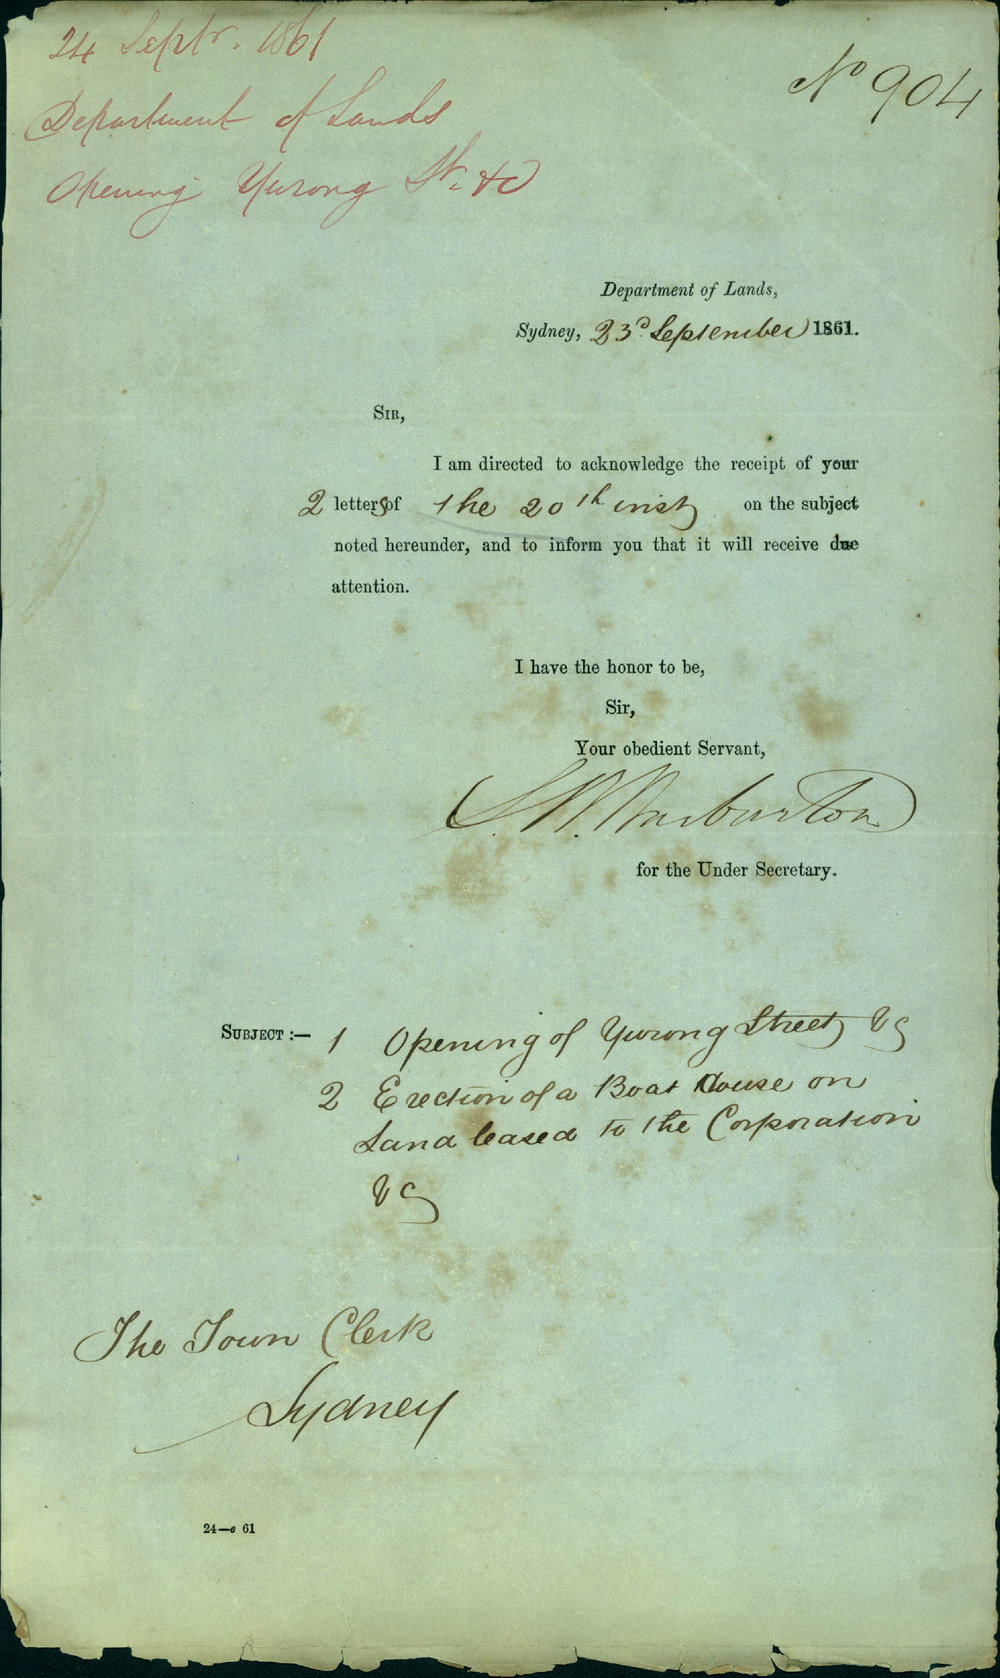 24 Septr. 1861
Department of Lands
Opening Yurong St. &c
No 904
Department of Lands,
Sydney, 23d September 1861.
SIR,
I am directed to acknowledge the receipt of your
2 letters of the 20th inst on the subject
noted hereunder, and to inform you that it will receive due
attention.
I have the honor to be,
Sir,
Your obedient Servant,
Warburton
for the Under Secretary.
SUBJECT :— 1 Opening of Yurong Street &c
2 Erection of a Boat House on
Land leased to the Corporation
&c
The Town Clerk
Sydney
24—e 61